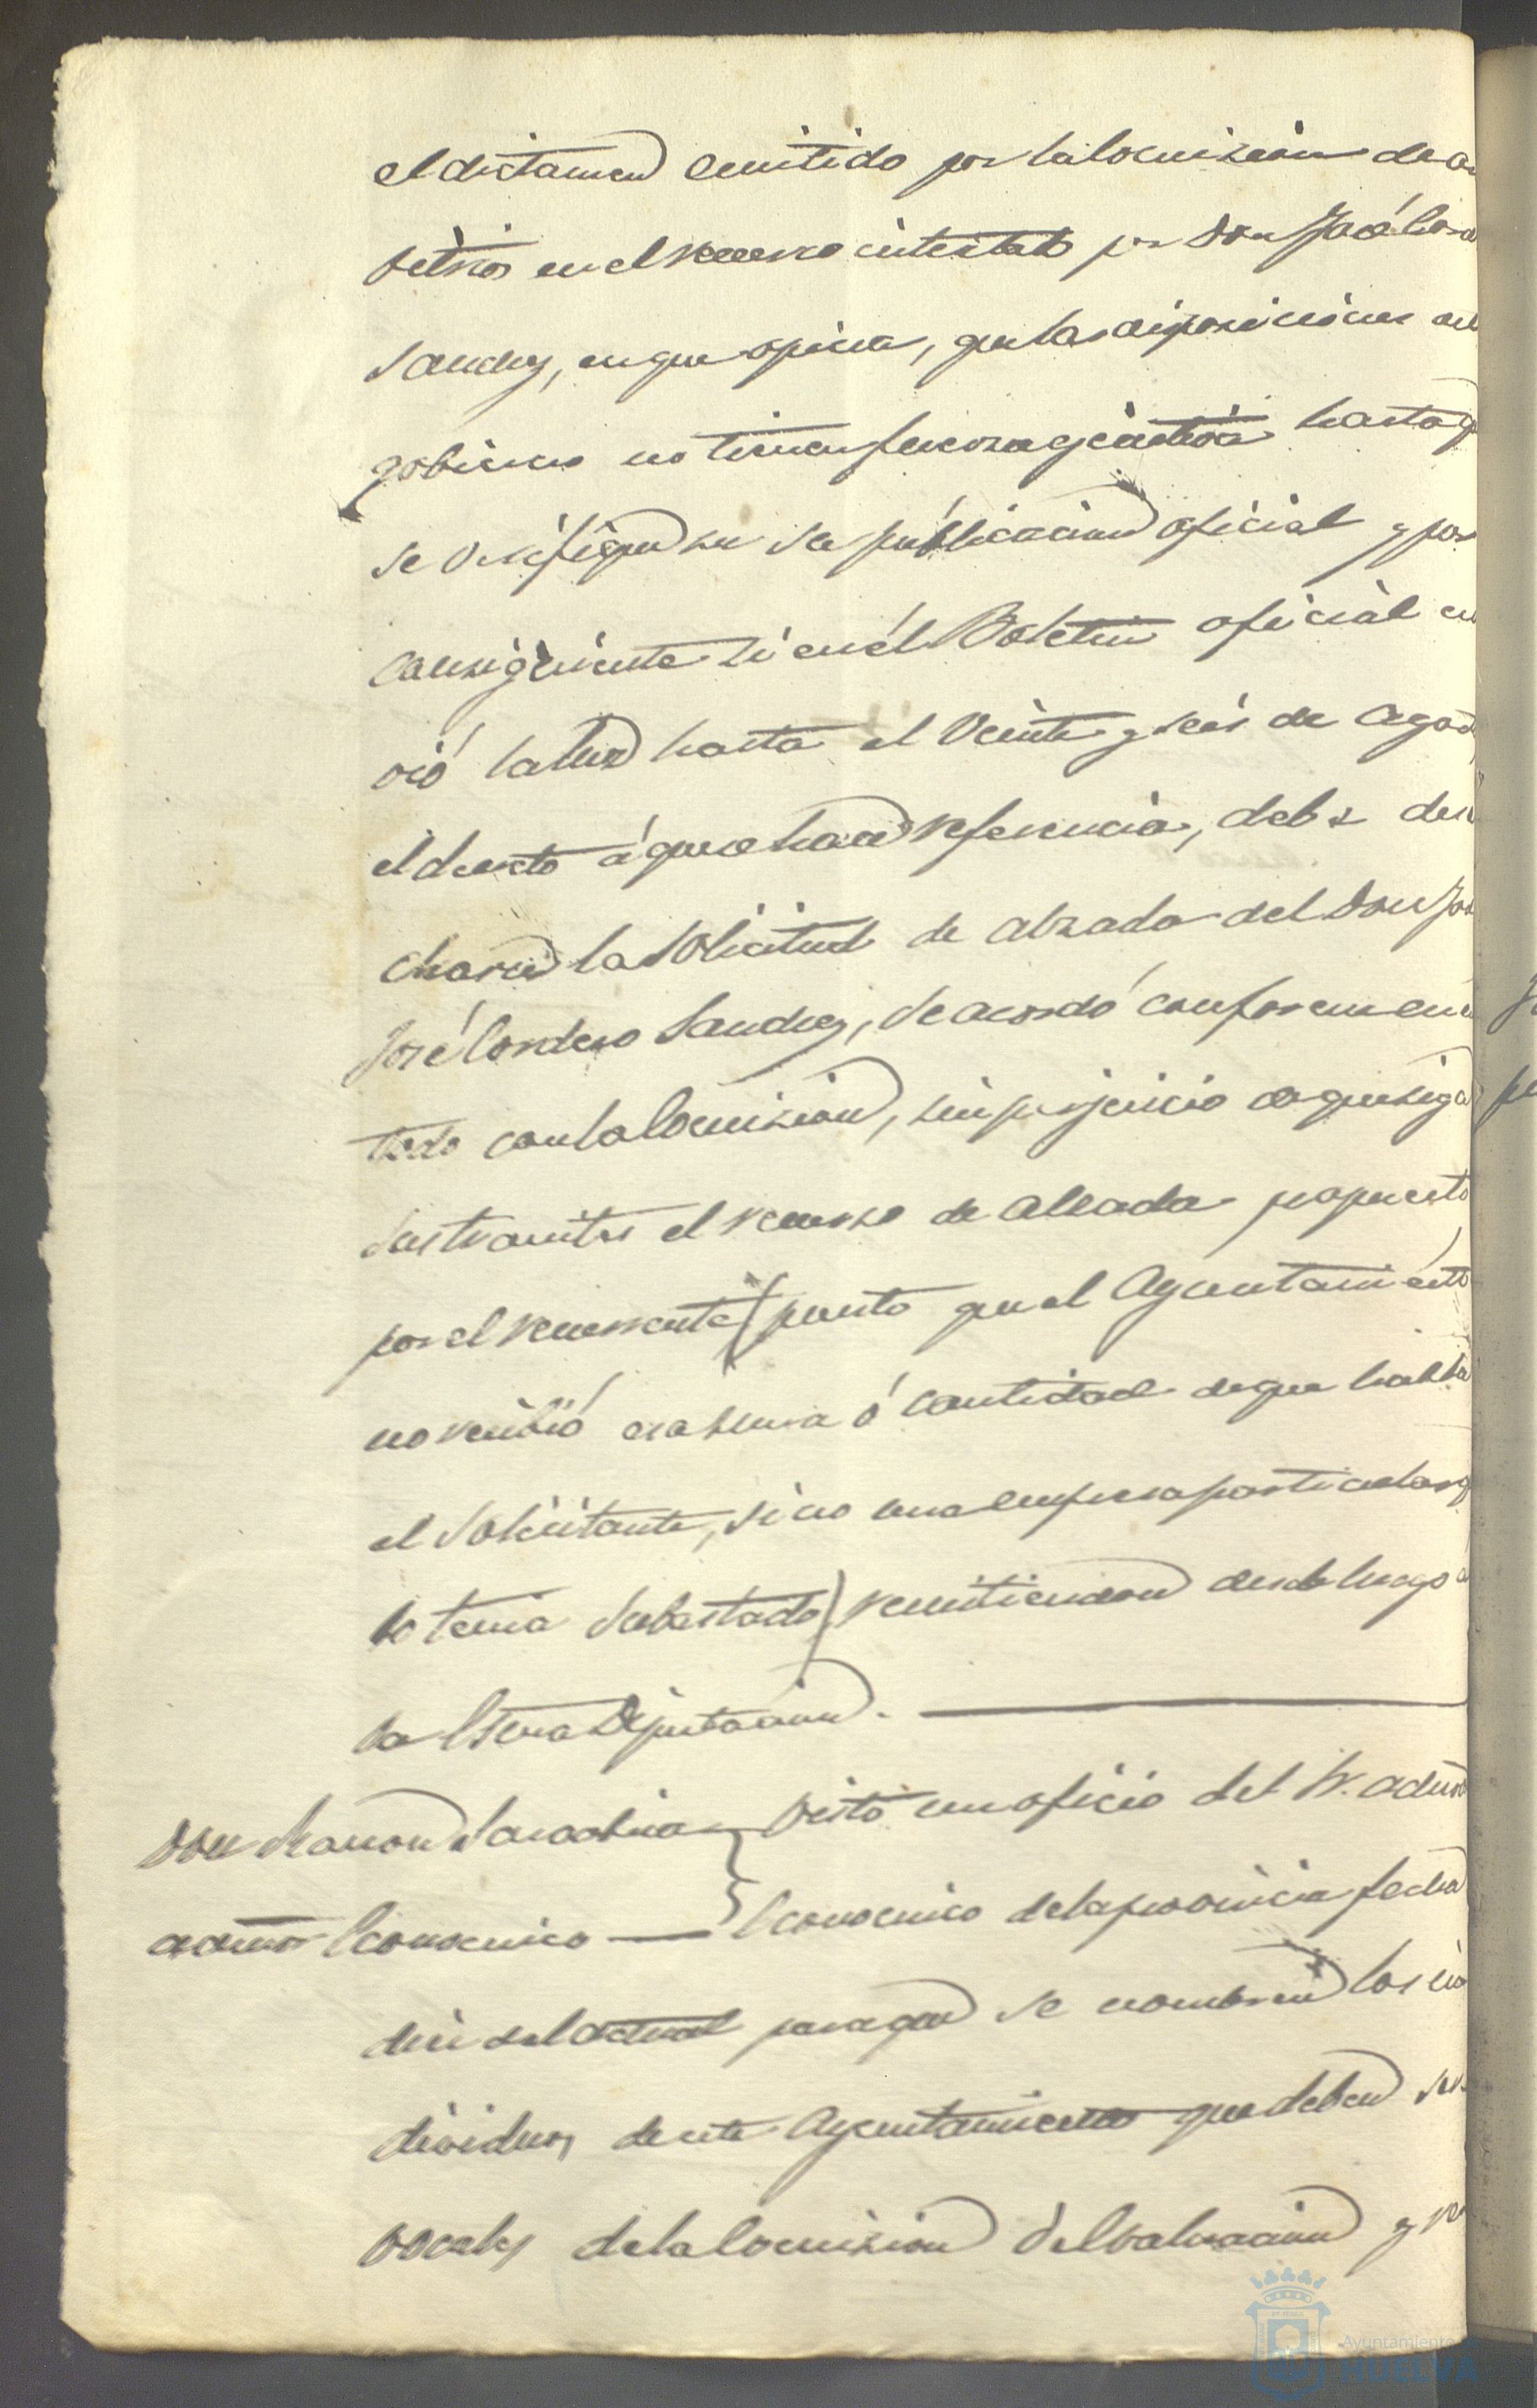 el dictamen emitido por la Comision de ar
vitrios en el recurso intentado por Don José Corde
Sanchez, en que opina, que las disposiciones del
gobierno no tienen fuerza ejecutiva hasta q
se verifique su publicacion oficial y por
consiguiente si en el Boletin oficial no
vió la luz hasta el veinte y seis de Agos
el decreto á que se hace referencia, debe des
charse la Solicitud de alzada del Don
José Cordero Sanchez, se acordó conforme en
todo con la Comision, sin perjuicio de que siga
sus tramites el recurso de alzada propuesto
por el recurrente (puesto que el Ayuntamiento
no recibió esa suma ó Cantidad de que habla
el Solicitante, si no una empresa particular q
lo tenia Subastado) remitiendose desde luego a
la Escma Diputacion.
Don Ramon Sarachaga Visto un oficio del Sr. admor
admor Economico Economico de la provincia fecha
diez del actual para que se nombren los in
dividuos de este Ayuntamiento que deben ser
vocales de la Comision de Evaluacion y re
Ayuntamiento
HUELVA